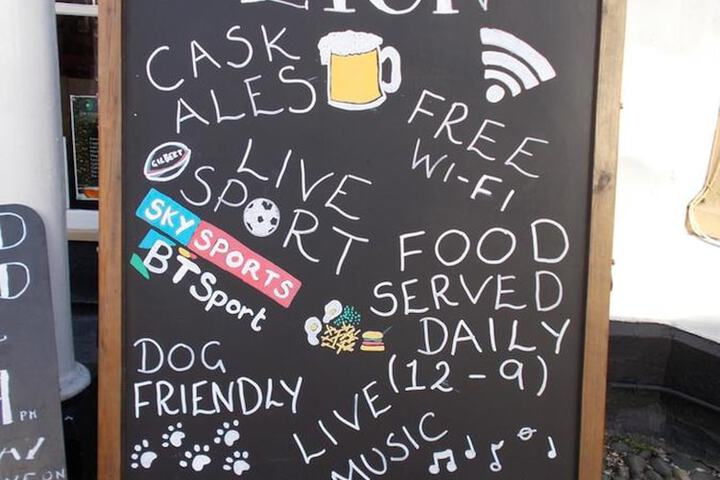 LION
CASK
ALES
FREE
WI-FI
GILBERT
LIVE
SPORT
SKY SPORTS
BT Sport
FOOD
SERVED
DAILY
(12-9)
DOG
FRIENDLY
LIVE
MUSIC
D
D
PM